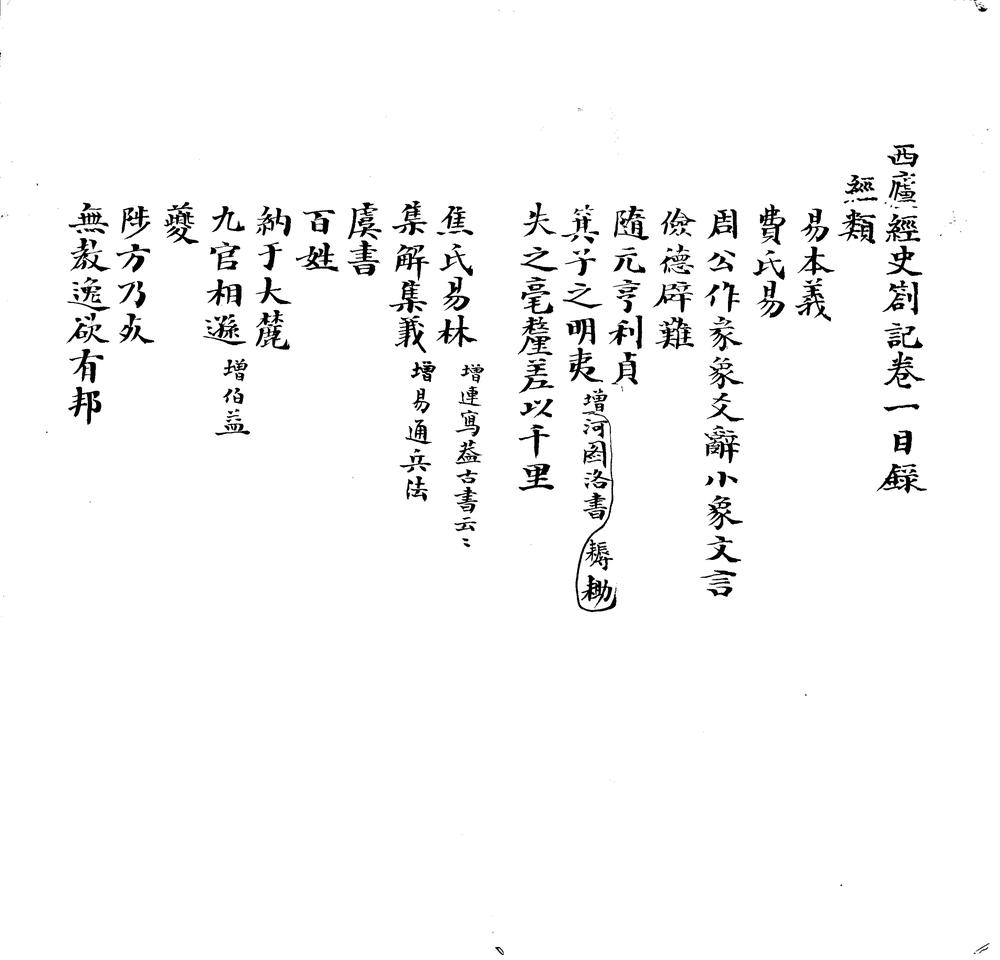 西廬經史劄記卷一目録
經類
易本義
費氏易
周公作彖象爻辭小象文言
儉德辟難
隨元亨利貞
箕子之明夷 增河图洛書 耨耡
失之毫釐差以千里
焦氏易林 增連寫蓋古書云〻
集解集義 增易通兵法
虞書
百姓
納于大麓
九官相遜 增伯益
夔
陟方乃死
無教逸欲有邦